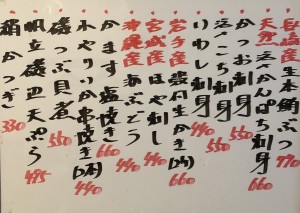 長崎産生本鮪ぶつ 770
天然活〆かんぱち刺身 660
かつお刺身 550
活〆こち刺身 550
いわし刺身 440
岩手産殻付生かき(2ケ) 660
宮城産ほや刺し 440
沖縄産海ぶどう 440
かます塩焼き 660
小やりいか串焼き(2本) 440
磯つぶ貝煮 550
帆立磯辺天ぷら 495
稍かつぎ 330